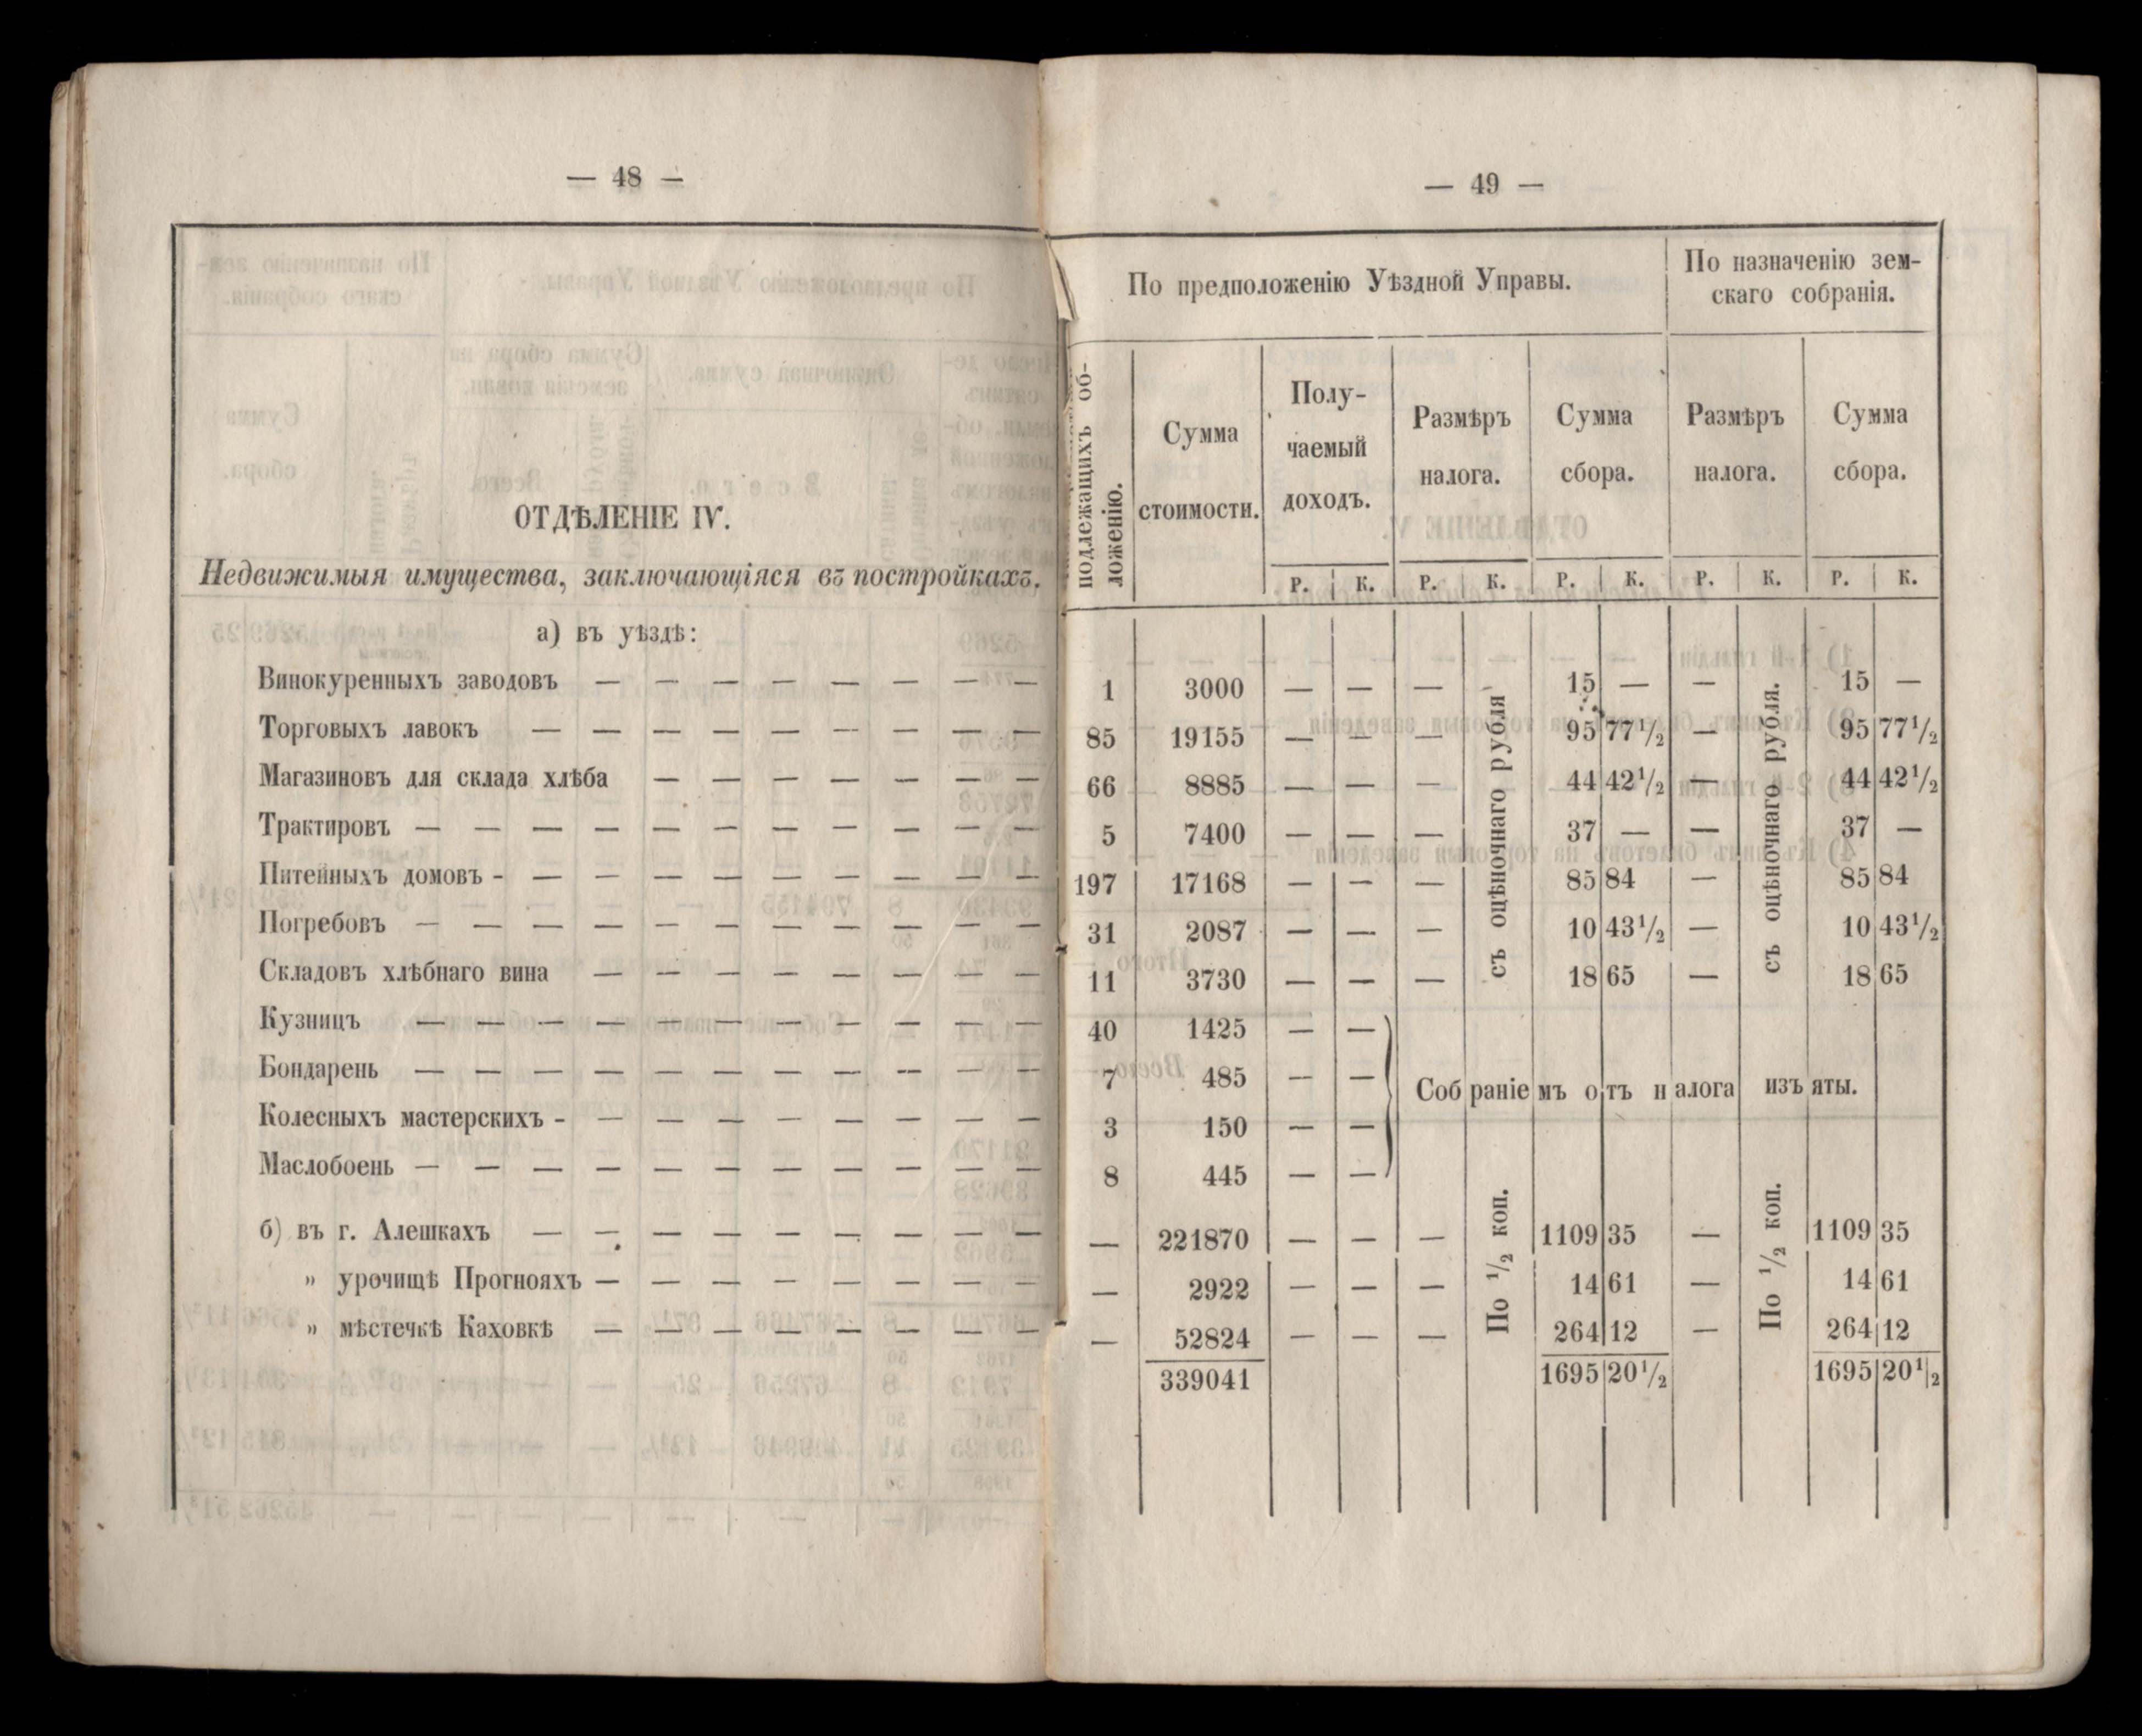 — 48 —
ОТДѢЛЕНІЕ IV.
Недвижимыя имущества, заключающіяся въ постройкахъ.
а) въ уѣздѣ:
Винокуренныхъ заводовъ — — — — — — — —
Торговыхъ лавокъ — — — — — — — — —
Магазиновъ для склада хлѣба — — — — — — —
Трактировъ — — — — — — — — — — —
Питейныхъ домовъ - — — — — — — — — —
Погребовъ — — — — — — — — — — —
Складовъ хлѣбнаго вина — — — — — — — —
Кузницъ — — — — — — — — — — —
Бондарень — — — — — — — — — — —
Колесныхъ мастерскихъ - — — — — — — — —
Маслобоень — — — — — — — — — — —
б) въ г. Алешкахъ — — — — — — — — —
„ урочищѣ Прогнояхъ — — — — — — — —
„ мѣстечкѣ Каховкѣ — — — — — — — —
— 49 —
По предположенію Уѣздной Управы.
По назначенію зем-
скаго собранія.
подлежащихъ об-
ложенію.
Сумма
стоимости.
Полу-
чаемый
доходъ.
Размѣръ
налога.
Сумма
сбора.
Размѣръ
налога.
Сумма
сбора.
Р. К. Р. К. Р. К. Р. К. Р. К.
1 3000 — — — 15 — — 15 —
85 19155 — — — 95 77½ — 95 77½
66 8885 — — — 44 42½ — 44 42½
5 7400 — — — 37 — — 37 —
197 17168 — — — 85 84 — 85 84
31 2087 — — — 10 43½ — 10 43½
11 3730 — — — 18 65 — 18 65
40 1425 — —
7 485 — — Собраніемъ отъ налога изъяты.
3 150 — —
8 445 — —
— 221870 — — — 1109 35 — 1109 35
— 2922 — — — 14 61 — 14 61
— 52824 — — — 264 12 — 264 12
339041 1695 20½ 1695 20½
По ½ коп. съ оцѣночнаго рубля
По ½ коп. съ оцѣночнаго рубля.